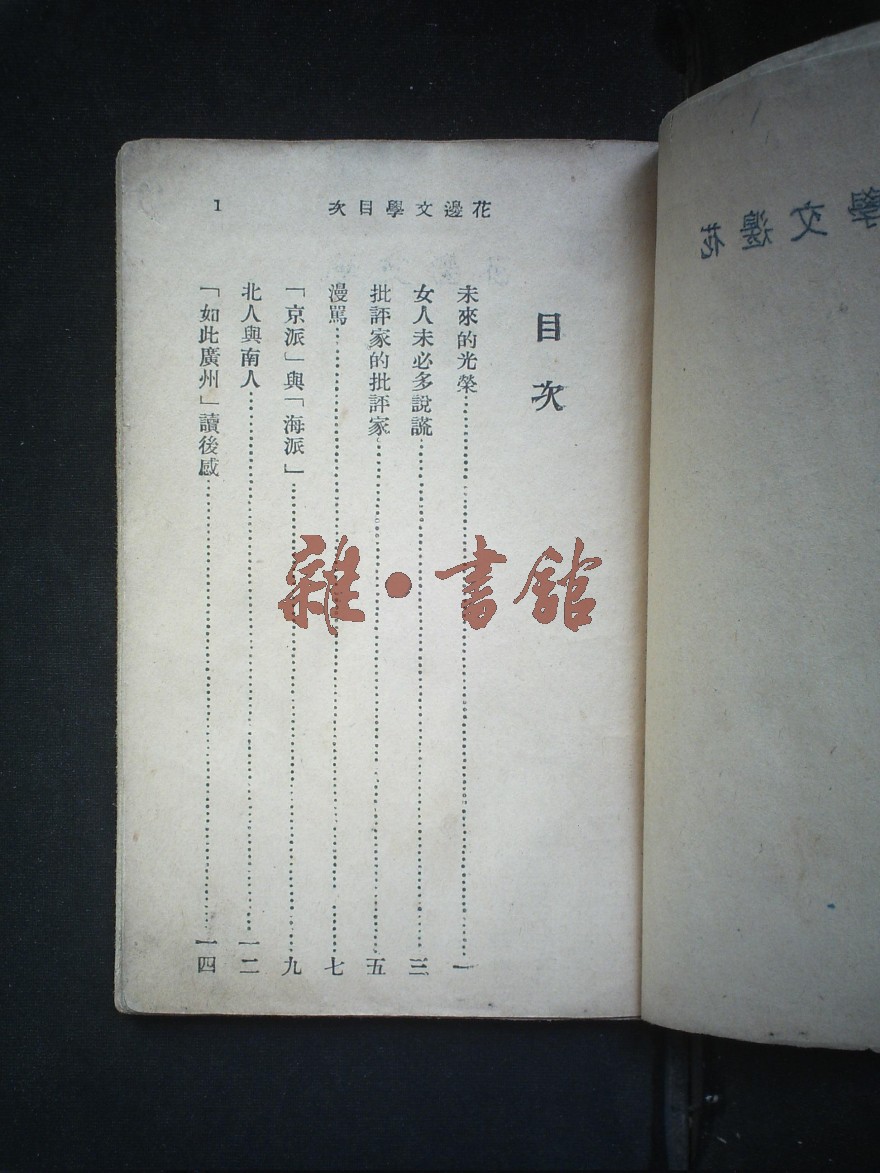 花邊文學目次 1
目次
未來的光榮……一
女人未必多說謊……三
批評家的批評家……五
漫罵……七
「京派」與「海派」……九
北人與南人……一二
「如此廣州」讀後感……一四
雜·書館
花邊文學